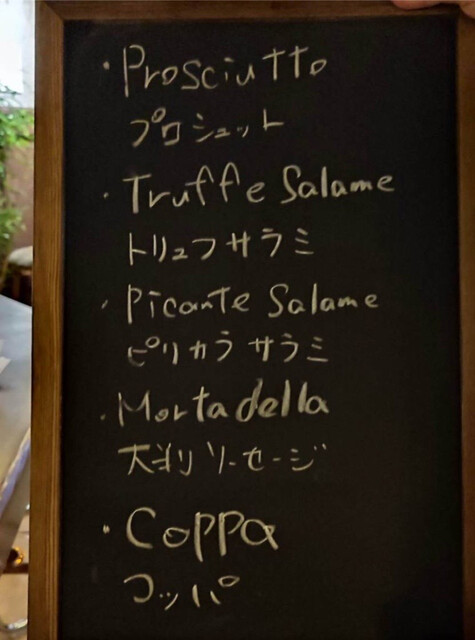 ・Prosciutto
プロシュット
・Truffe Salame
トリュフサラミ
・Picante Salame
ピリカラサラミ
・Mortadella
大判ソーセージ
・Coppa
コッパ